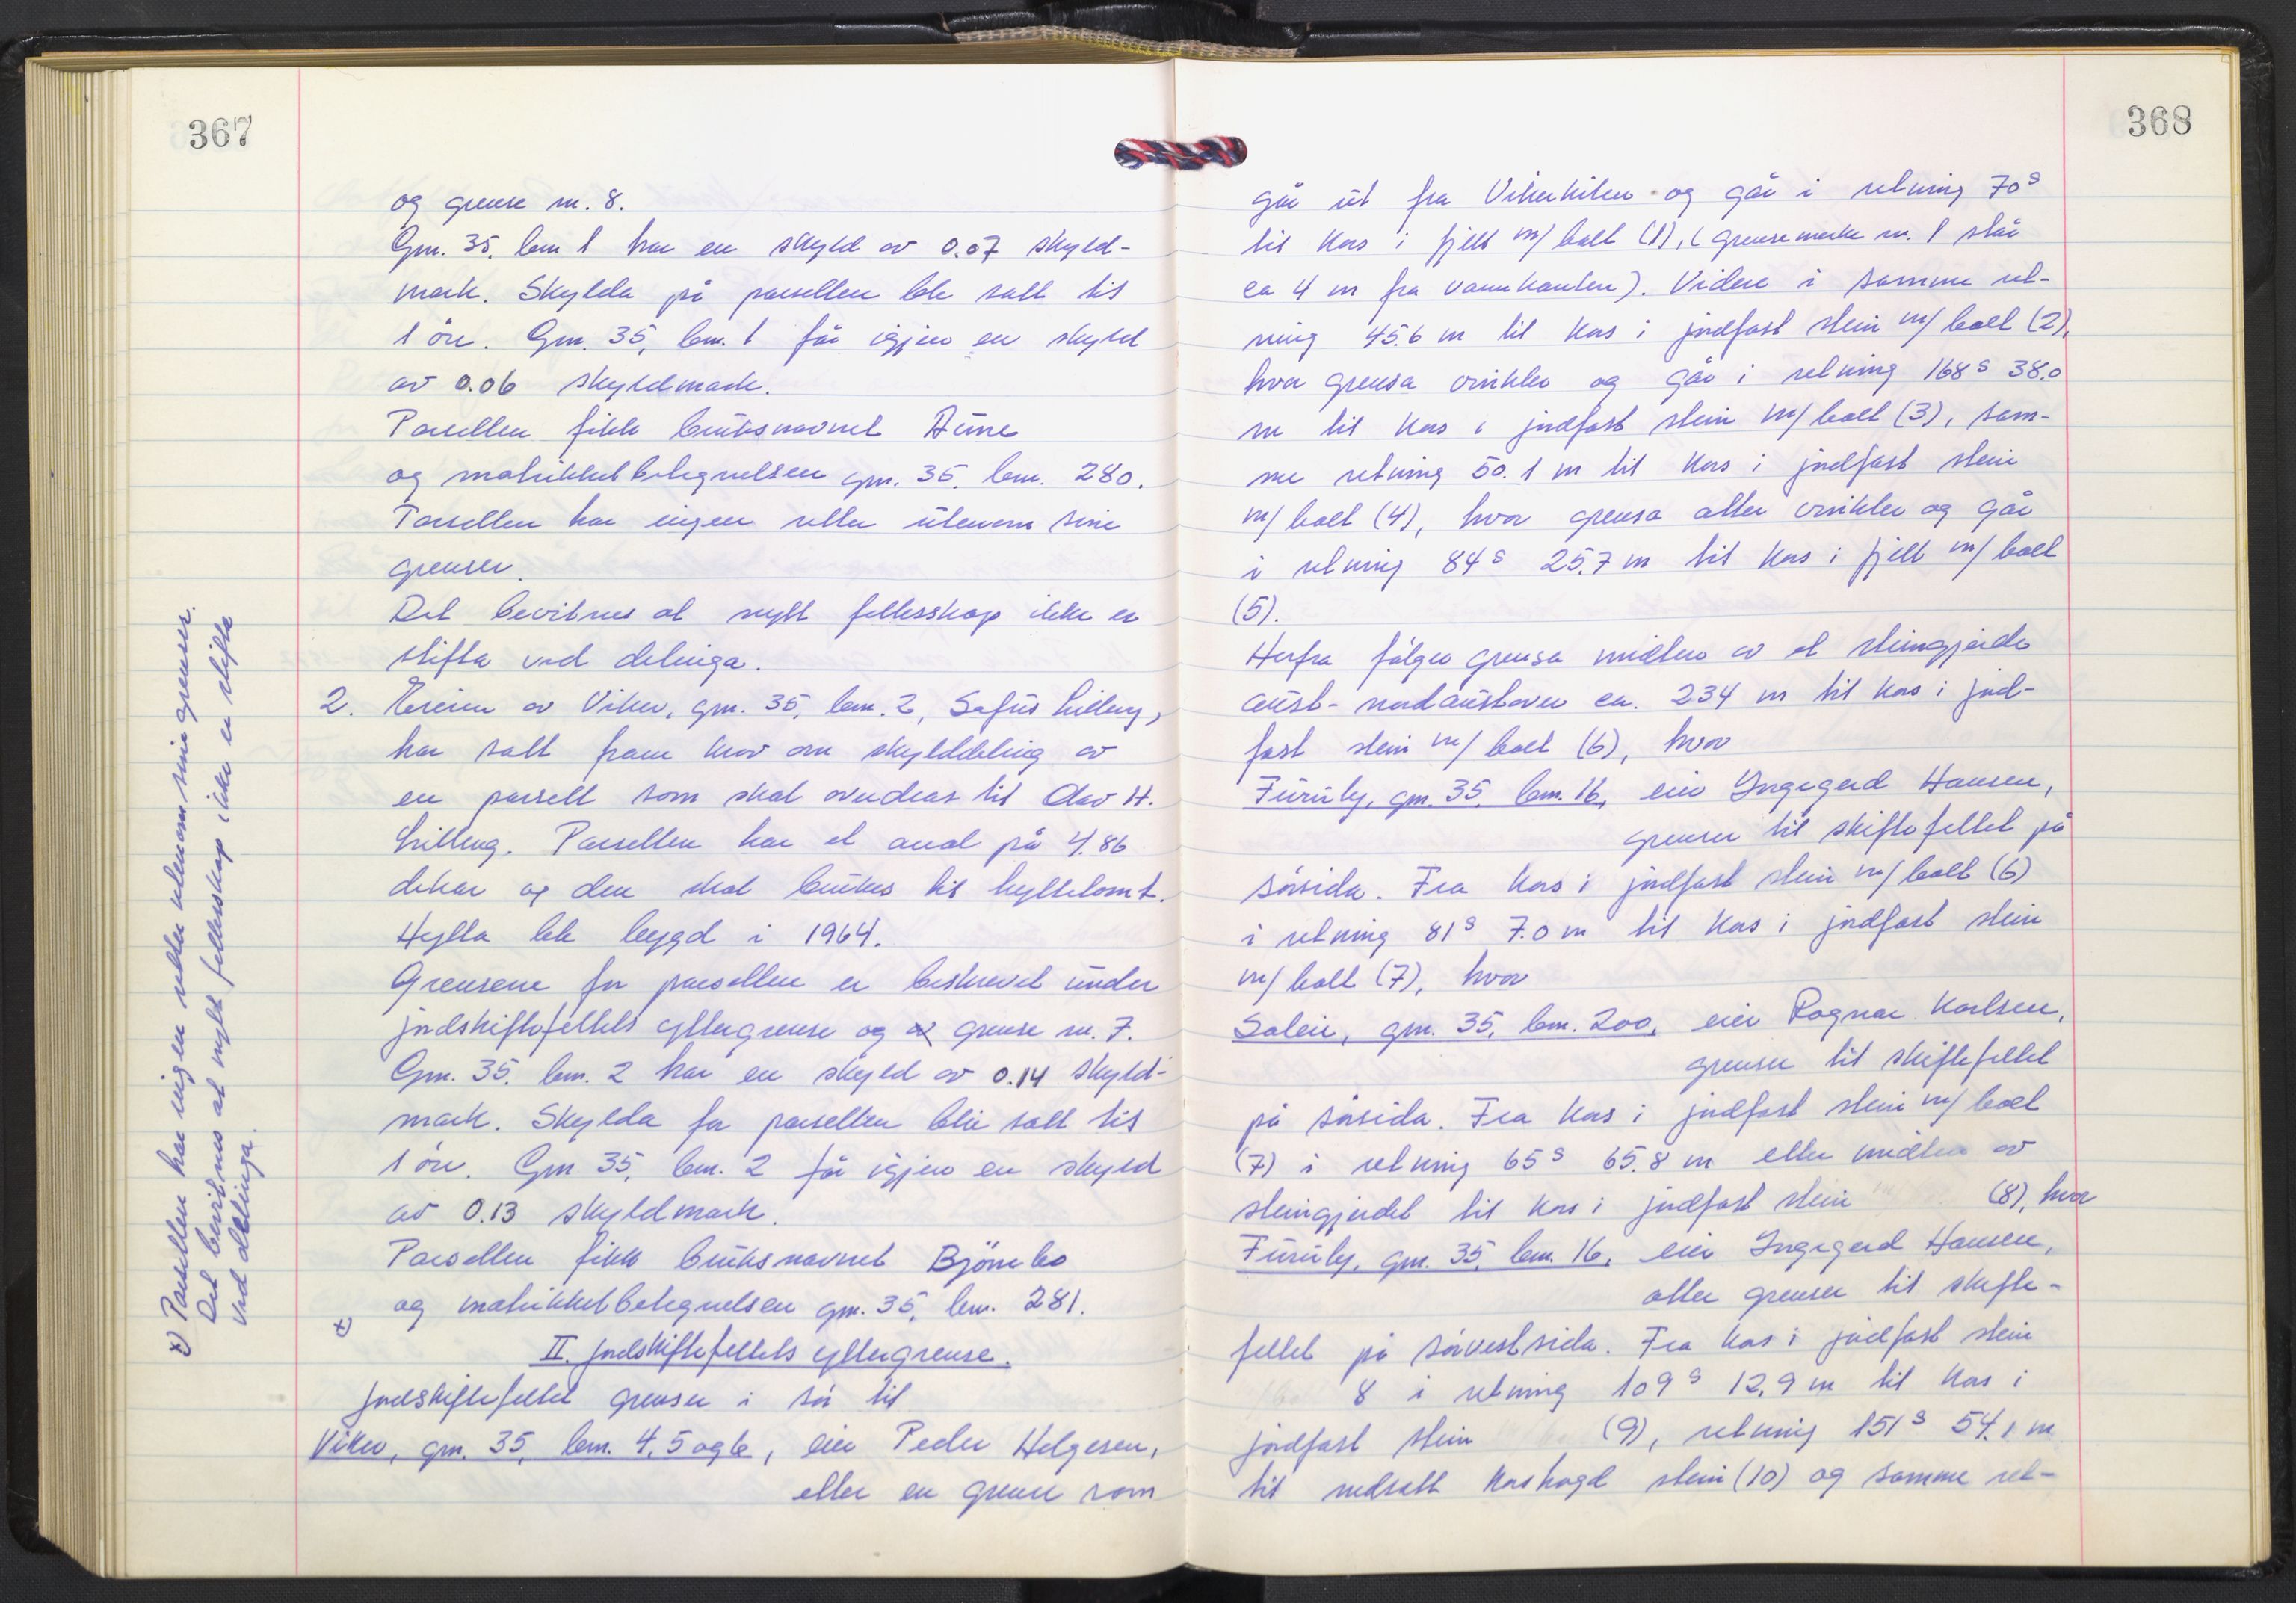 367
og grense nr. 8.
Gnr. 35, bnr 1 har en skyld av 0.07 skyld-
mark. Skylda på parsellen ble satt til
1 öre. Gnr. 35, bnr. 1 får igjen en skyld
av 0.06 skyldmark.
Parsellen fikk bruksnavnet
og matrikkelbetegnelsen gnr. 35, bnr. 280.
Parsellen har ingen retter utenom sine
grenser.
Det bevitnes at nytt fellesskap ikke er
stifta ved delinga.
2. Eieren av Viker, gnr. 35, bnr. 2, Safús Lilleng,
har satt fram krav om skylddeling av
en parsell som skal overdras til Olav H.
Lilleng. Parsellen har et areal på 4.86
dekar og den skal brukes til hyttetomt.
Hytta ble bygd i 1964.
Grensene for parsellen er beskrevet under
jordskiftefeltets yttergrense og grense nr. 7.
Gnr. 35, bnr. 2 har en skyld av 0.14 skyld-
mark. Skylda for parsellen blir satt til
1 öre. Gnr 35, bnr. 2 får igjen en skyld
av 0.13 skyldmark.
Parsellen fikk bruksnavnet Björnebo
og matrikkelbetegnelsen gnr. 35, bnr. 281.
x)
II. Jordskiftefeltets yttergrense.
Jordskiftefeltet grenser i sör til
Viker, gnr. 35, bnr. 4, 5 og 6, eier Peder Helgesen,
etter en grense som
x) Parsellen har ingen retter utenom sine grenser.
Det bevitnes at nytt fellesskap ikke er stifta
ved delinga.
368
går ut fra Vikerkilen og går i retning 70g
til kors i fjell m/ bolt (1), (grensemerke nr. 1 står
ca 4 m fra vannkanten). Videre i samme ret-
ning 45.6 m til kors i jordfast stein m/ bolt (2),
hvor grensa vinkler og går i retning 168g 38.0
m til kors i jordfast stein m/ bolt (3), sam-
me retning 50.1 m til kors i jordfast stein
m/ bolt (4), hvor grensa atter vinkler og går
i retning 84g 25.7 m til kors i fjell m/ bolt
(5).
Herfra fölger grensa midten av et steingjerde
aust-nordaustover ca. 234 m til kors i jord-
fast stein m/ bolt (6), hvor
Furuly, gnr. 35, bnr. 16, eier Ingegerd Hansen,
grenser til skiftefeltet på
sörsida. Fra kors i jordfast stein m/ bolt (6)
i retning 81g 7.0 m til kors i jordfast stein
m/ bolt (7), hvor
Soleie, gnr. 35, bnr. 200, eier Ragnar Karlsen,
grenser til skiftefeltet
på sörsida. Fra kors i jordfast stein m/ bolt
(7) i retning 65g 65.8 m etter midten av
steingjerdet til kors i jordfast stein (8), hvor
Furuly, gnr. 35, bnr. 16, eier Ingegerd Hansen,
atter grenser til skifte-
feltet på sörvestsida. Fra kors i jordfast stein
8 i retning 109g 12.9 m til kors i
jordfast stein (9), retning 151g 54.1 m
til nedsatt korshogd stein (10) og samme ret-